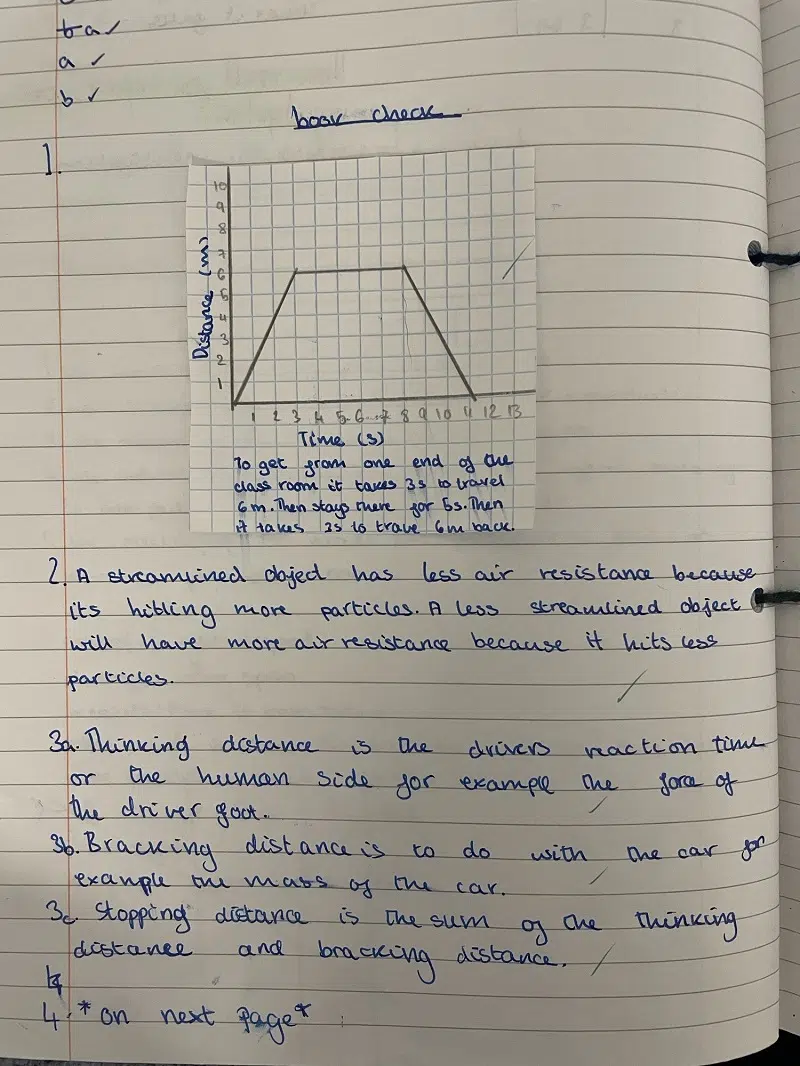 a ✓
a ✓
b ✓
book check
1.
10
9
8
7
6
5
4
3
2
1
Distance (m)
1 2 3 4 5 6 7 8 9 10 11 12 13
Time (s)
To get from one end of the
class room it takes 3s to travel
6m. Then stays there for 5s. Then
it takes 3s to trave 6m back.
2. A streamlined object has less air resistance because
its hitting more particles. A less streamlined object
will have more air resistance because it hits less
particles.
3a. Thinking distance is the drivers reaction time
or the human side for example the force of
the driver foot.
3b. Bracking distance is to do with the car for
example the mass of the car.
3c. Stopping distance is the sum of the thinking
distance and bracking distance.
4. *on next page*